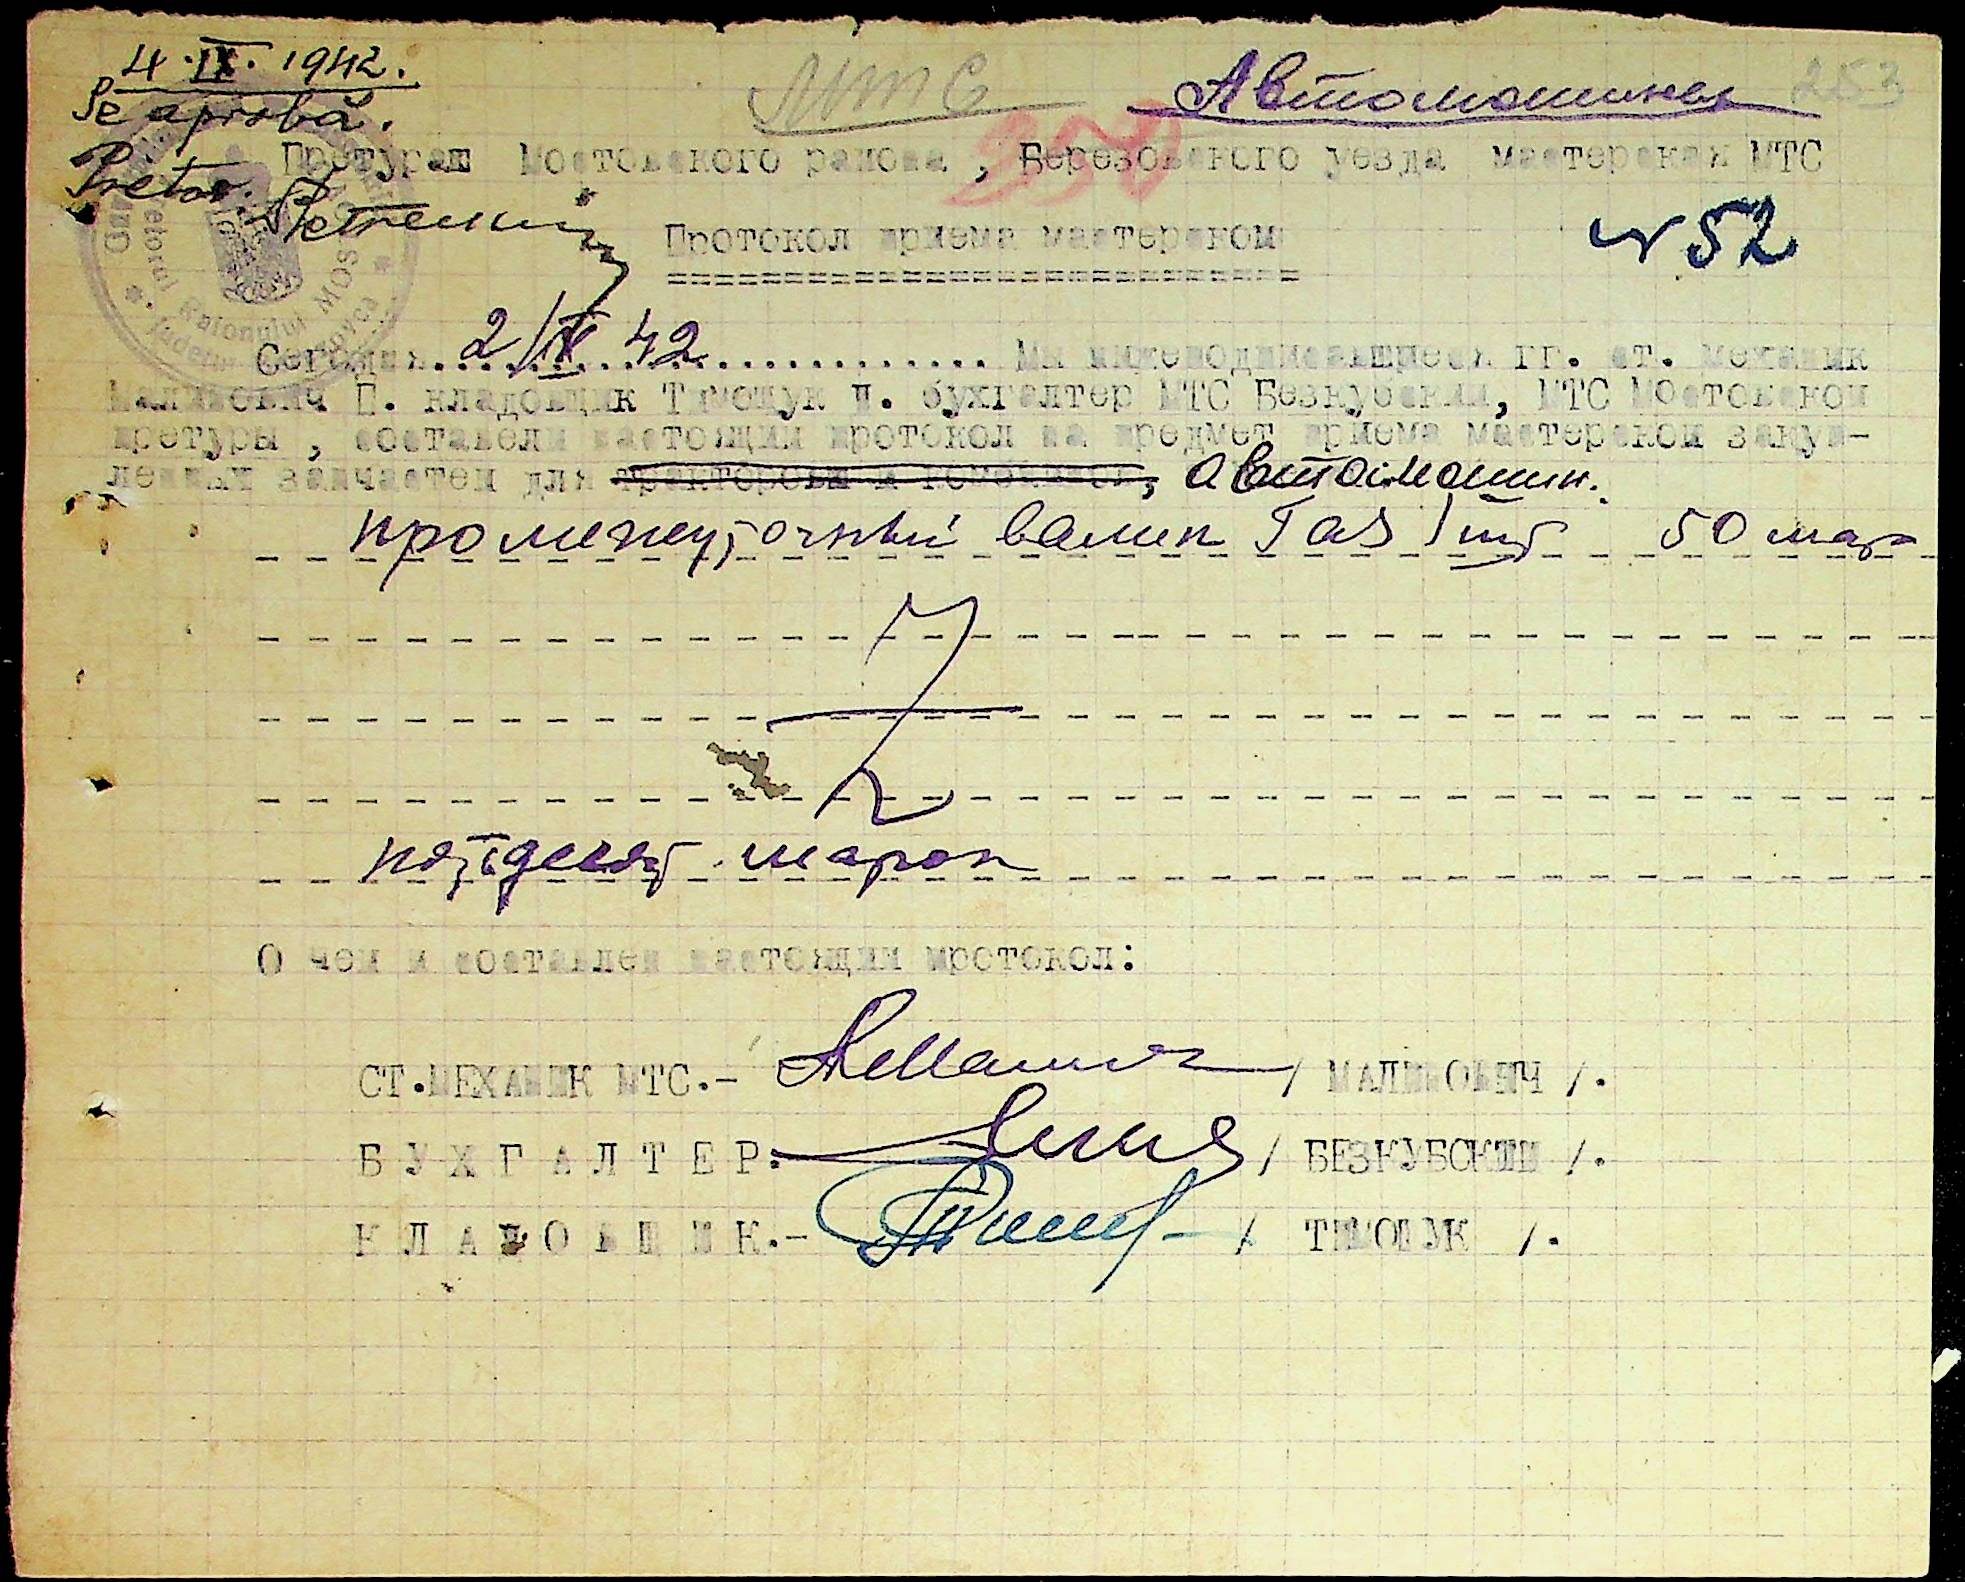 4.IX.1942.
Se aprobă.
Pretor.
МТС
Автомашины
253
350
Претурат Мостовского раиона, Березовского уезда мастерская МТС
Протокол приема мастерском
№ 52
Сегодня 2/IX 42 Мы нижеподписавшиеся гг. ст. механик
Малинович П. кладовщик Тимощук П. бухгалтер МТС Безкубскии, МТС Мостовскои
претуры, составели настоящии протокол на предмет приема мастерскои закуп-
леных запчастеи для тракторовы и автомашин.
промежуточный валик Газ 1 шт 50 мар
пятьдесят марок
О чем и составлен настоящии протокол:
СТ.МЕХАНИК МТС.- / МАЛИНОВИЧ /.
БУХГАЛТЕР. / БЕЗКУБСКИИ /.
КЛАДОВЩИК.- / ТИМОЩУК /.
Pretorul Raionului MOSTOVOI